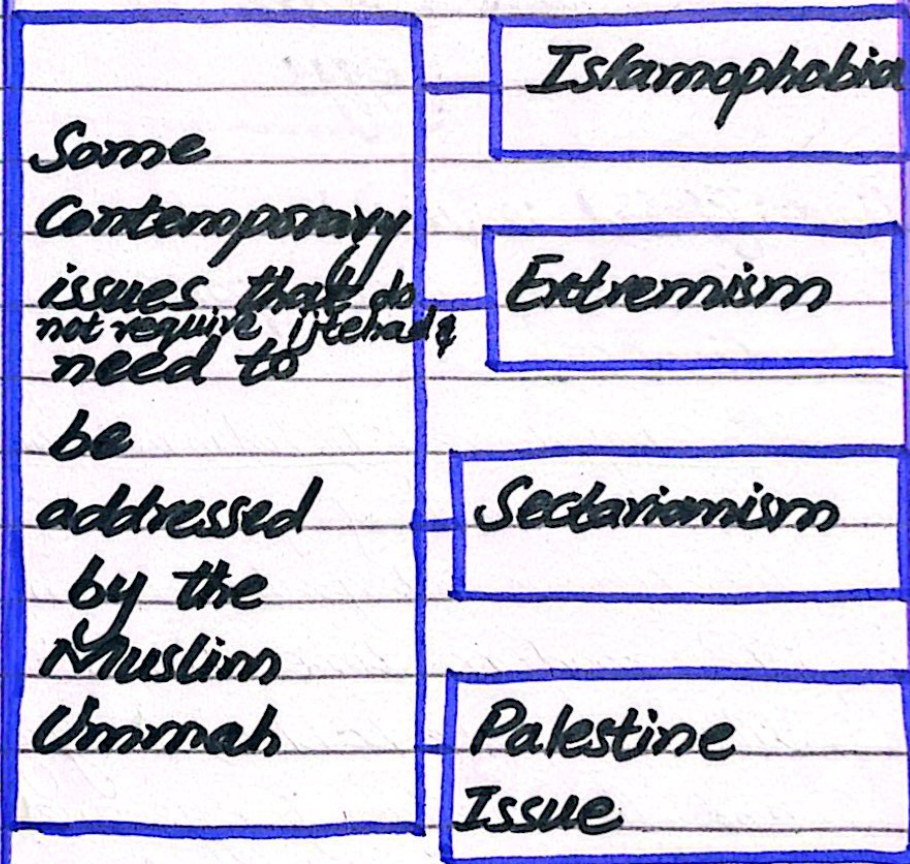 Some
Contemporary
issues that do
not require ijtehad &
need to
be
addressed
by the
Muslim
Ummah
Islamophobia
Extremism
Sectarianism
Palestine
Issue